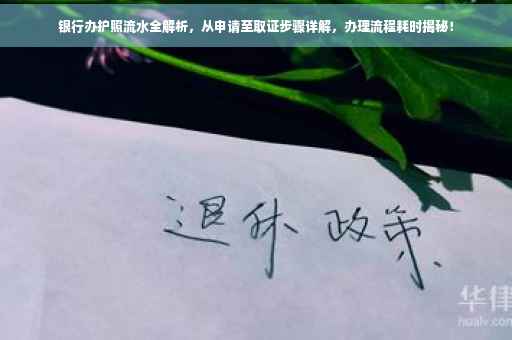 银行办护照流水全解析，从申请至取证步骤详解，办理流程耗时揭秘！
退休 政策
华律
hualv.com